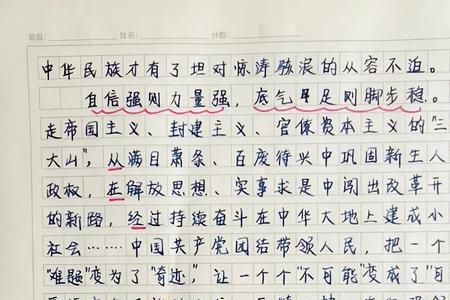 班级: 姓名: 分数:
中华民族才有了坦对惊涛骇浪的从容不迫。
自信强则力量强，底气足则脚步稳。
走帝国主义、封建主义、官僚资本主义的“三
大山”，从满目萧条、百废待兴中巩固新生人
政权，在解放思想、实事求是中闯出改革开
的新路，经过持续奋斗在中华大地上建成小
社会……中国共产党团结带领人民，把一个
“难题”变为了“奇迹”，让一个个“不可能”变成了“可